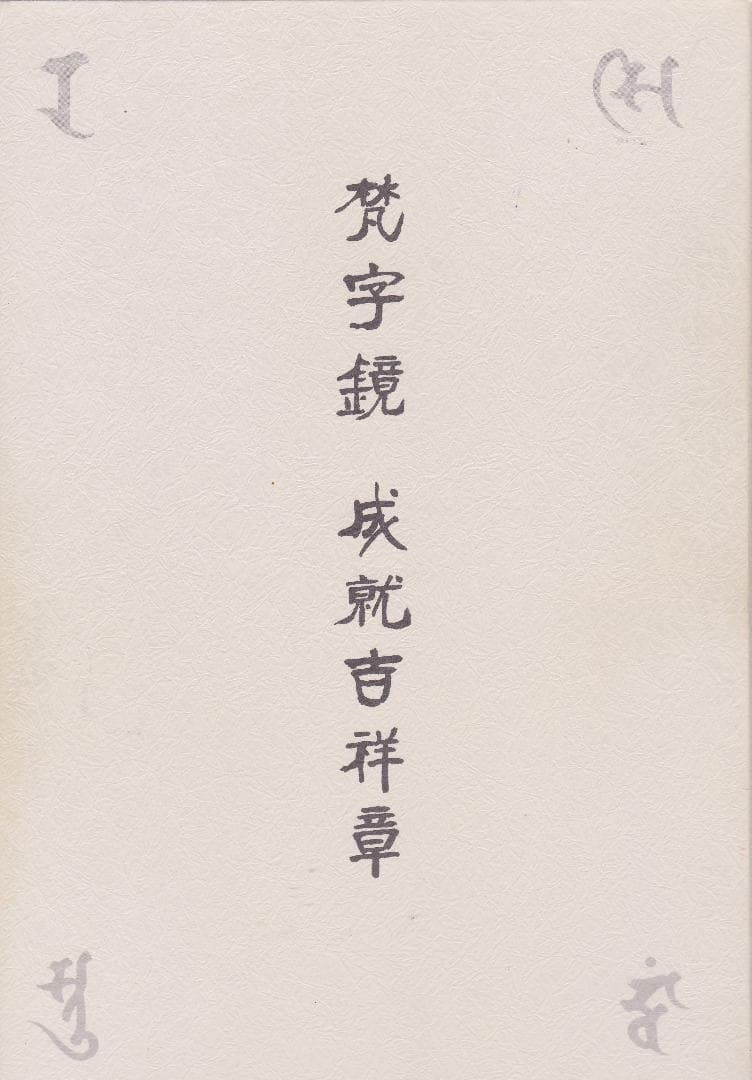 梵字鏡 成就吉祥章